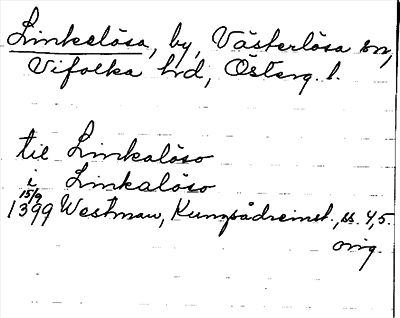 Linkelösa, by, Västerlösa sn,
Vifolka hd, Österg. l.
til Linkaløso
i Linkaløso
15/9
1399 Westman, Kungsådreinst., ss. 4, 5.
orig.